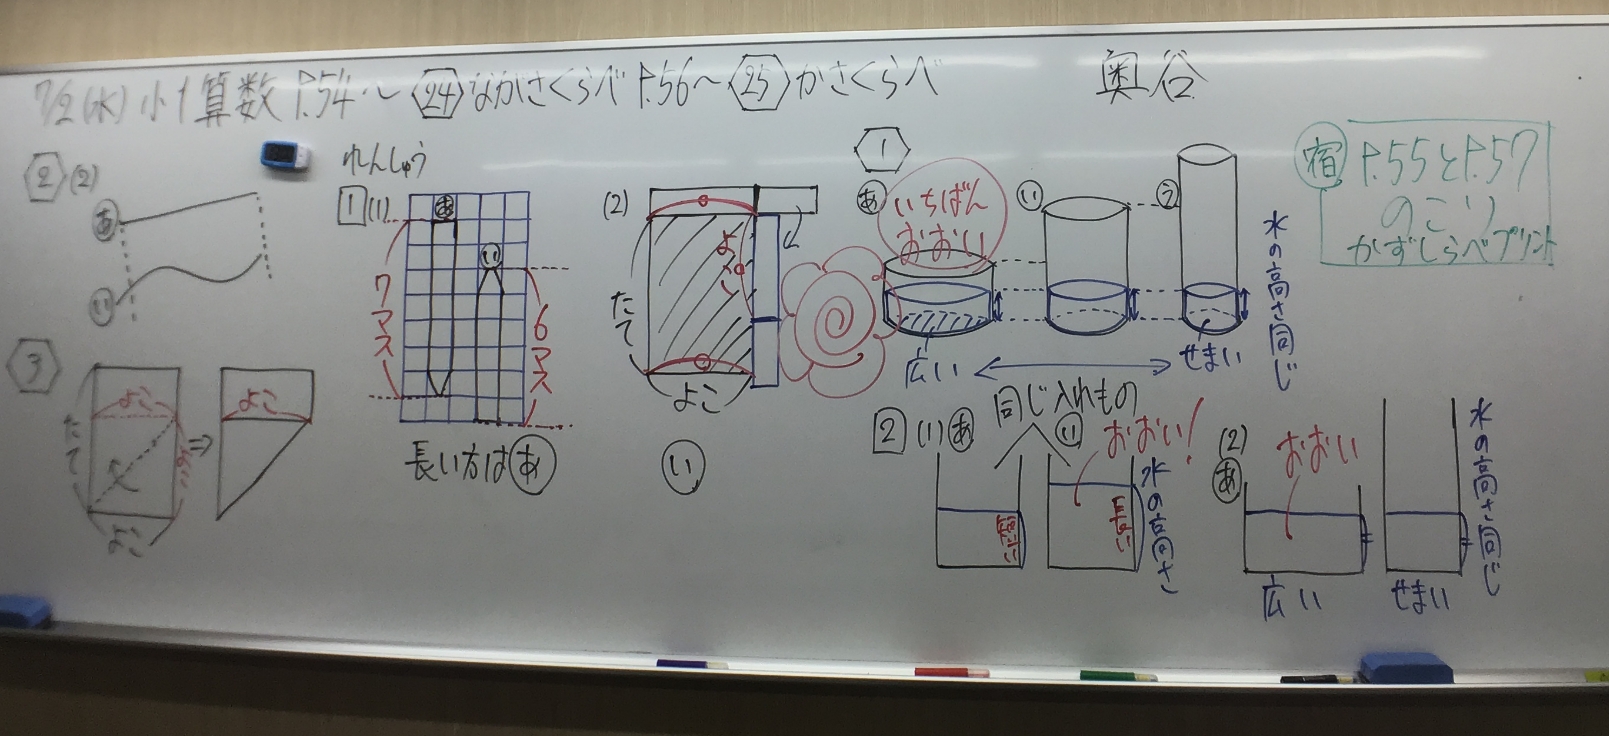 7/2(水) 小1算数 P.54〜 24 ながさくらべ P.56〜 25 かさくらべ 奥谷
2 (2)
あ
い
3
よこ
たて
よこ
よこ
れんしゅう
1 (1)
あ
い
7マス
6マス
長い方はあ
(2)
よこ
たて
よこ
い
1
あ
いちばん
おおい
い
う
水の高さ同じ
広い
せまい
2 (1) あ
同じ入れもの
い
おおい!
短い
長い
水の高さ
(2)
あ
おおい
水の高さ同じ
広い
せまい
宿 P.55とP.57
のこり
かずしらべプリント